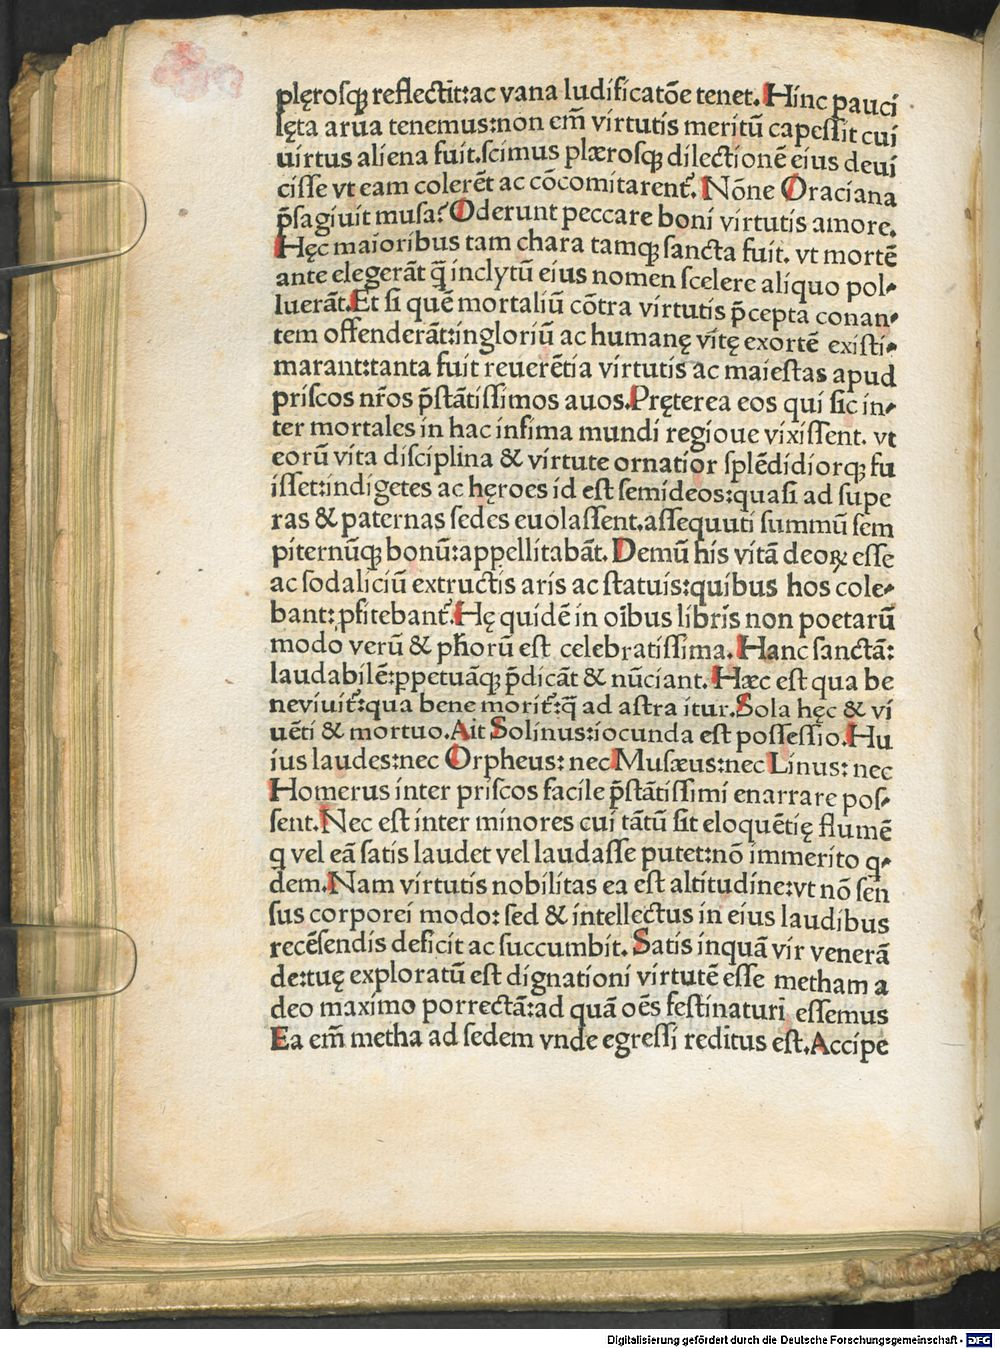 plęroſqꝫ reflectit:ac vana ludificatōe tenet. Hinc pauci
lęta arua tenemus:non em̄ virtutis meritū capeſſit cui
uirtus aliena fuit.ſcimus plæroſqꝫ dilectionē eius deui
ciſſe vt eam colerēt ac cōcomitarent᷑. Nōne Oraciana
p̄ſagiuit muſa? Oderunt peccare boni virtutis amore.
Hęc maioribus tam chara tamqꝫ ſancta fuit. vt mortē
ante elegerāt q̄ inclytū eius nomen ſcelere aliquo pol-
luerāt.Et ſi quē mortaliū cōtra virtutis p̄cepta conan-
tem offenderāt:ingloriū ac humanę vitę exortē exiſti-
marant:tanta fuit reuerētia virtutis ac maieſtas apud
priſcos nr̄os p̄ſtātiſſimos auos.Pręterea eos qui ſic in-
ter mortales in hac infima mundi regioue vixiſſent. vt
eorū vita diſciplina & virtute ornatior ſplēdidiorqꝫ fu
iſſet:indigetes ac hęroes id eſt ſemideos:quaſi ad ſupe
ras & paternas ſedes euolaſſent.aſſequuti ſummū ſem
piternūqꝫ bonū:appellitabāt. Demū his vitā deoꝝ eſſe
ac ſodaliciū extructis aris ac ſtatuis:quibus hos cole-
bant:ꝓfitebant᷑.Hę quidē in oībus libris non poetarū
modo verū & ph̄orū eſt celebratiſſima. Hanc ſanctā:
laudabilē:ꝑpetuāqꝫ p̄dicāt & nūciant. Hæc eſt qua be
neviuit᷑:qua bene morit᷑:q̄ ad aſtra itur.Sola hęc & vi
uēti & mortuo.Ait Solinus:iocunda eſt poſſeſſio.Hu
ius laudes:nec Orpheus: nec Muſæus:nec Linus: nec
Homerus inter priſcos facile p̄ſtātiſſimi enarrare poſ-
ſent.Nec eſt inter minores cui tātū ſit eloquētię flumē
q vel eā ſatis laudet vel laudaſſe putet:nō immerito q-
dem.Nam virtutis nobilitas ea eſt altitudine:vt nō ſen
ſus corporei modo: ſed & intellectus in eius laudibus
recēſendis deficit ac ſuccumbit. Satis inquā vir venerā
de:tuę exploratū eſt dignationi virtutē eſſe metham a
deo maximo porrectā:ad quā oēs feſtinaturi eſſemus
Ea em̄ metha ad ſedem vnde egreſſi reditus eſt.Accipe
Digitalisierung gefördert durch die Deutsche Forschungsgemeinschaft - DFG